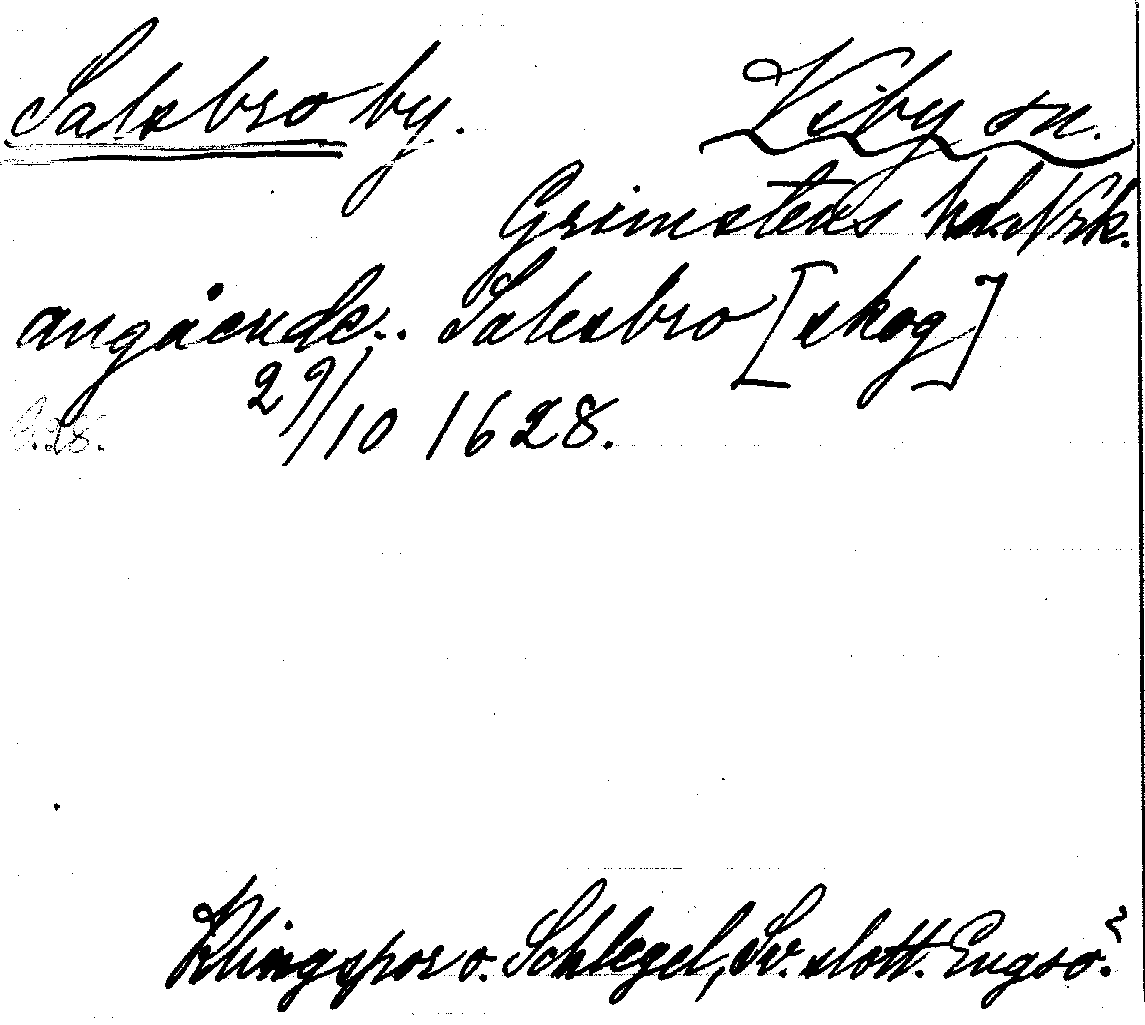 Salsbro by. Viby sn.
Grimstens hd. Nrk.
angående.. Salesbro [skog]
29/10 1628.
Klingspor o. Schlegel, Sv. slott. Engsö.